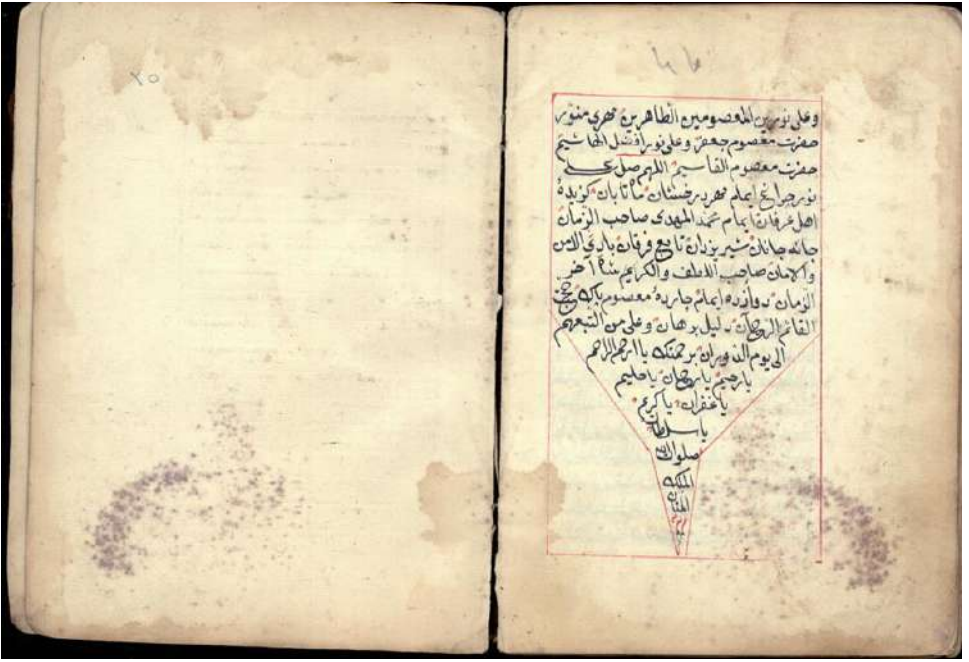 وعلى نورين المعصومين الطاهرين مهرى منور
حضرت معصوم جعفر وعلى نور افضل الهاشيم
حضرت معصوم القاسيم اللهم صل على
نور چراغ ايمام مهر درفشان ماتابان كزيدهٔ
اهل عرفان ايمام محمد المهدى صاحب الزمان
جانه جانان شير يزدان تابع فرقان الامن
والامان صاحب اللطف والكريم اخر
الزمان دوازده ايمام چارده معصوم پاك
القائم دليل برهان وعلى من التبعهم
الى يوم الدوران برحمتك يا ارحم الراحم
يا رحيم يا حليم
يا غفران يا كريم
يا سلطان
صلوات
الملك
المنان
٢٥